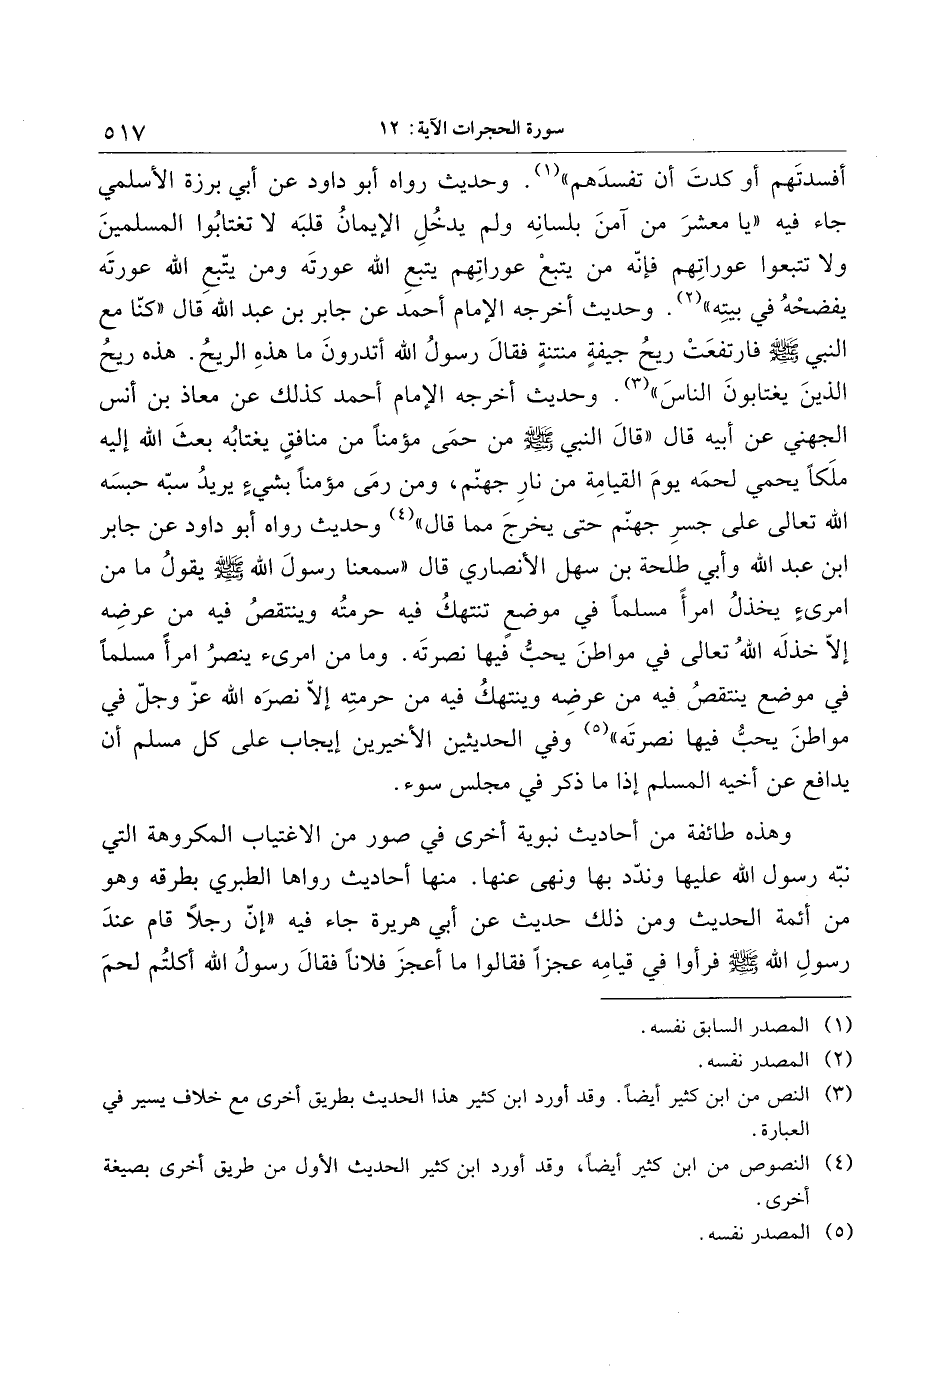 سورة الحجرات الآية: ١٢ ٥١٧
أفسدتَهم أو كدتَ أن تفسدَهم»(١). وحديث رواه أبو داود عن أبي برزة الأسلمي
جاء فيه «يا معشرَ من آمنَ بلسانِه ولم يدخُلِ الإيمانُ قلبَه لا تغتابُوا المسلمينَ
ولا تتبعوا عوراتِهم فإنّه من يتبعْ عوراتِهم يتبعِ الله عورتَه ومن يتّبعِ الله عورتَه
يفضحْهُ في بيتِه»(٢). وحديث أخرجه الإمام أحمد عن جابر بن عبد الله قال «كنّا مع
النبي ﷺ فارتفعَتْ ريحُ جيفةٍ منتنةٍ فقالَ رسولُ الله أتدرونَ ما هذهِ الريحُ. هذه ريحُ
الذينَ يغتابونَ الناسَ»(٣). وحديث أخرجه الإمام أحمد كذلك عن معاذ بن أنس
الجهني عن أبيه قال «قالَ النبي ﷺ من حمَى مؤمناً من منافقٍ يغتابُه بعثَ الله إليه
ملَكاً يحمي لحمَه يومَ القيامةِ من نارِ جهنّم، ومن رمَى مؤمناً بشيءٍ يريدُ سبّه حبسَه
الله تعالى على جسرِ جهنّم حتى يخرجَ مما قال»(٤) وحديث رواه أبو داود عن جابر
ابن عبد الله وأبي طلحة بن سهل الأنصاري قال «سمعنا رسولَ الله ﷺ يقولُ ما من
امرىءٍ يخذلُ امرأً مسلماً في موضعٍ تنتهكُ فيه حرمتُه وينتقصُ فيه من عرضِه
إلاّ خذلَه اللهُ تعالى في مواطنَ يحبُّ فيها نصرتَه. وما من امرىء ينصرُ امرأً مسلماً
في موضع ينتقصُ فيه من عرضِه وينتهكُ فيه من حرمتِه إلاّ نصرَه الله عزّ وجلّ في
مواطنَ يحبُّ فيها نصرتَه»(٥) وفي الحديثين الأخيرين إيجاب على كل مسلم أن
يدافع عن أخيه المسلم إذا ما ذكر في مجلس سوء.
وهذه طائفة من أحاديث نبوية أخرى في صور من الاغتياب المكروهة التي
نبّه رسول الله عليها وندّد بها ونهى عنها. منها أحاديث رواها الطبري بطرقه وهو
من أئمة الحديث ومن ذلك حديث عن أبي هريرة جاء فيه «إنّ رجلاً قام عندَ
رسولِ الله ﷺ فرأوا في قيامِه عجزاً فقالوا ما أعجزَ فلاناً فقالَ رسولُ الله أكلتُم لحمَ
(١) المصدر السابق نفسه.
(٢) المصدر نفسه.
(٣) النص من ابن كثير أيضاً. وقد أورد ابن كثير هذا الحديث بطريق أخرى مع خلاف يسير في
العبارة.
(٤) النصوص من ابن كثير أيضاً، وقد أورد ابن كثير الحديث الأول من طريق أخرى بصيغة
أخرى.
(٥) المصدر نفسه.